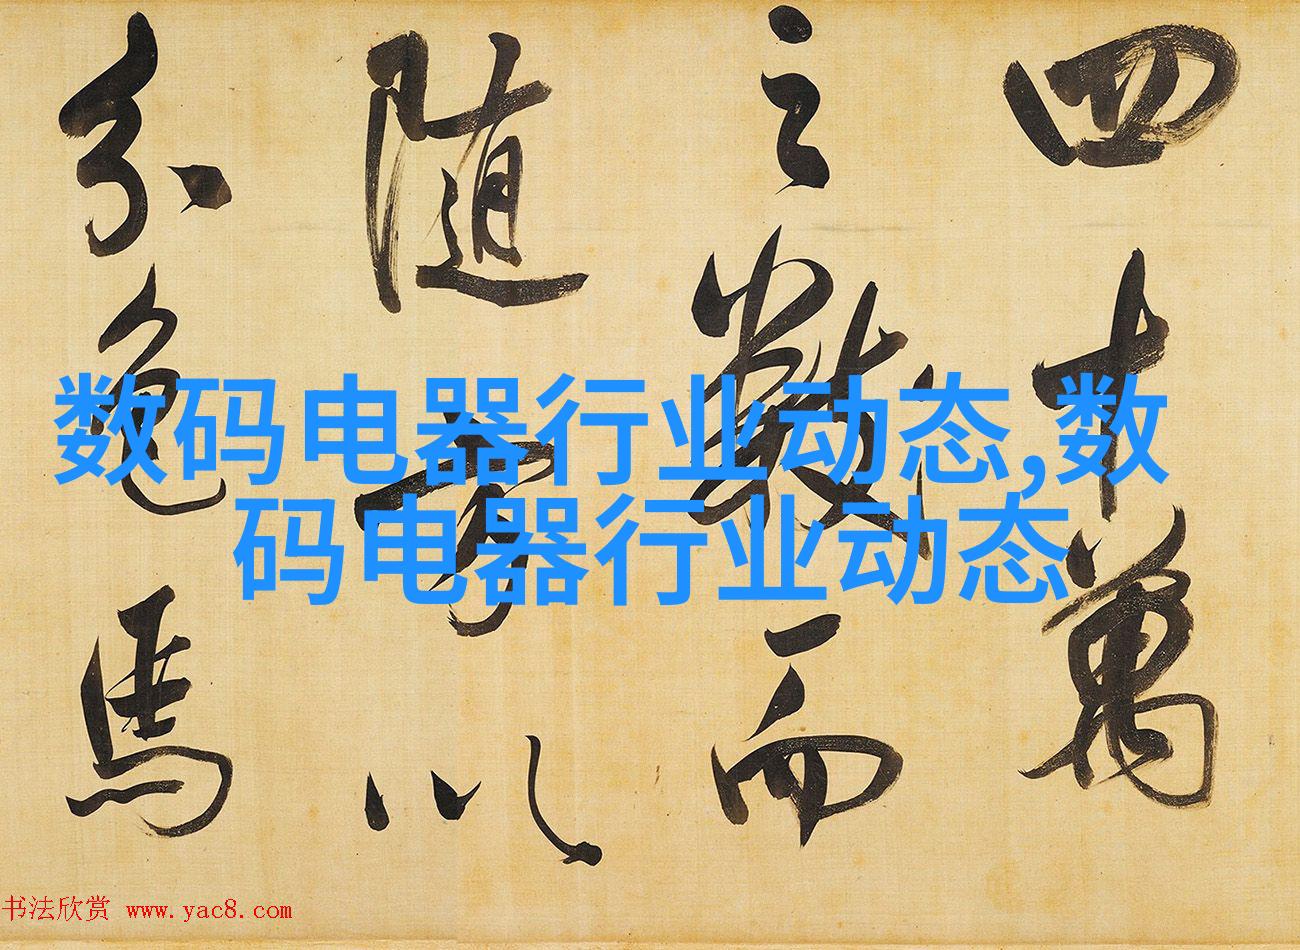 四十萬
之數而
随方以
分色馬
数码电器行业动态,数
码电器行业动态
书法欣赏 www.yac8.com